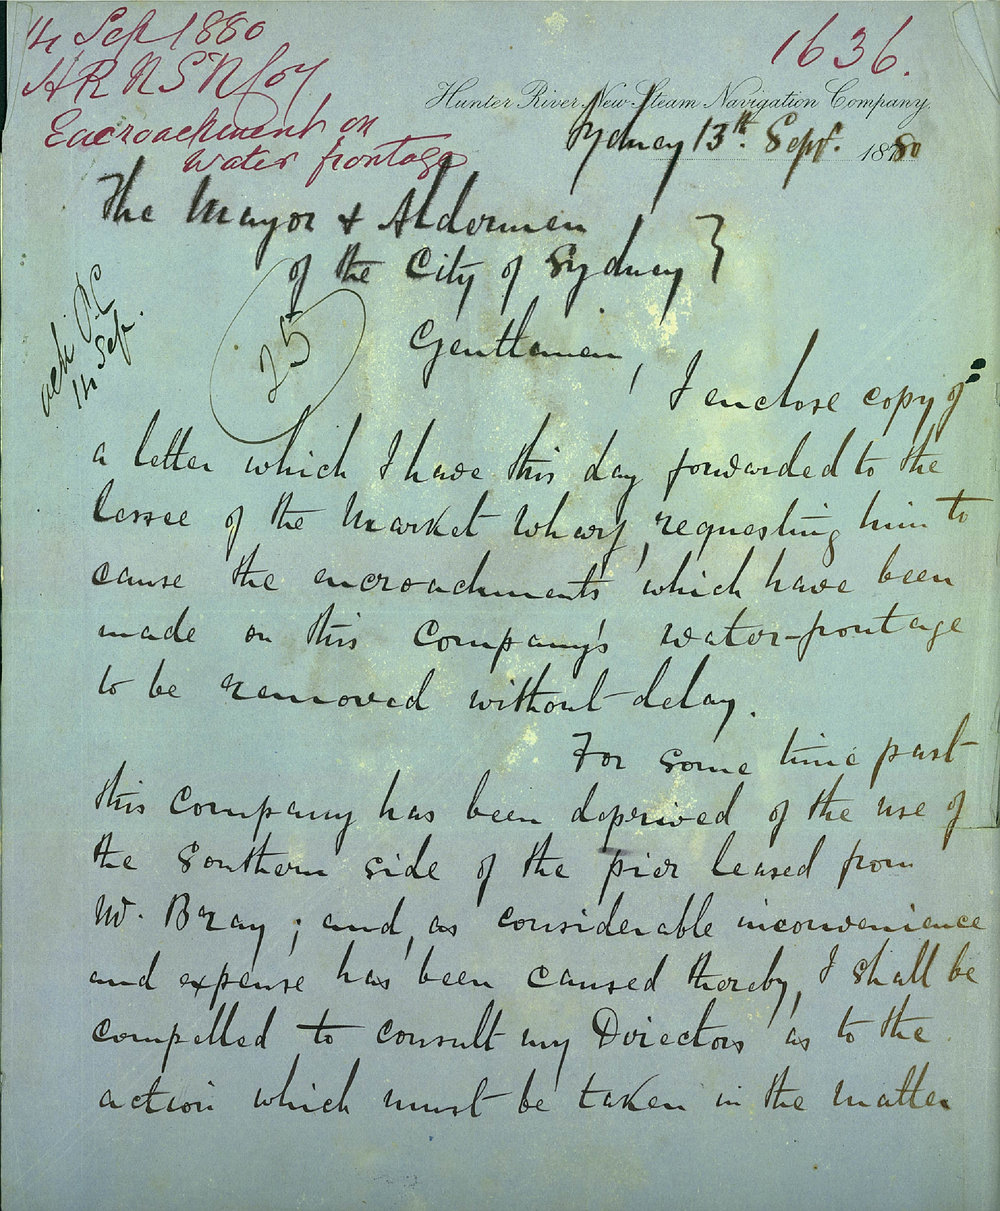 14 Sep 1880
H R N S N Coy
Encroachment on
water frontage
1636.
Hunter River New Steam Navigation Company,
Sydney 13th. Sept. 1880
The Mayor & Aldermen
of the City of Sydney }
25
ack PC
14 Sep.
Gentlemen,
I enclose copy of
a letter which I have this day forwarded to the
lessee of the Market Wharf, requesting him to
cause the encroachments which have been
made on this Company's water-frontage
to be removed without delay.
For some time past
this Company has been deprived of the use of
the Southern side of the pier leased from
Mr. Bray; and, as considerable inconvenience
and expense has been caused thereby, I shall be
compelled to consult my Directors as to the
action which must be taken in the matter